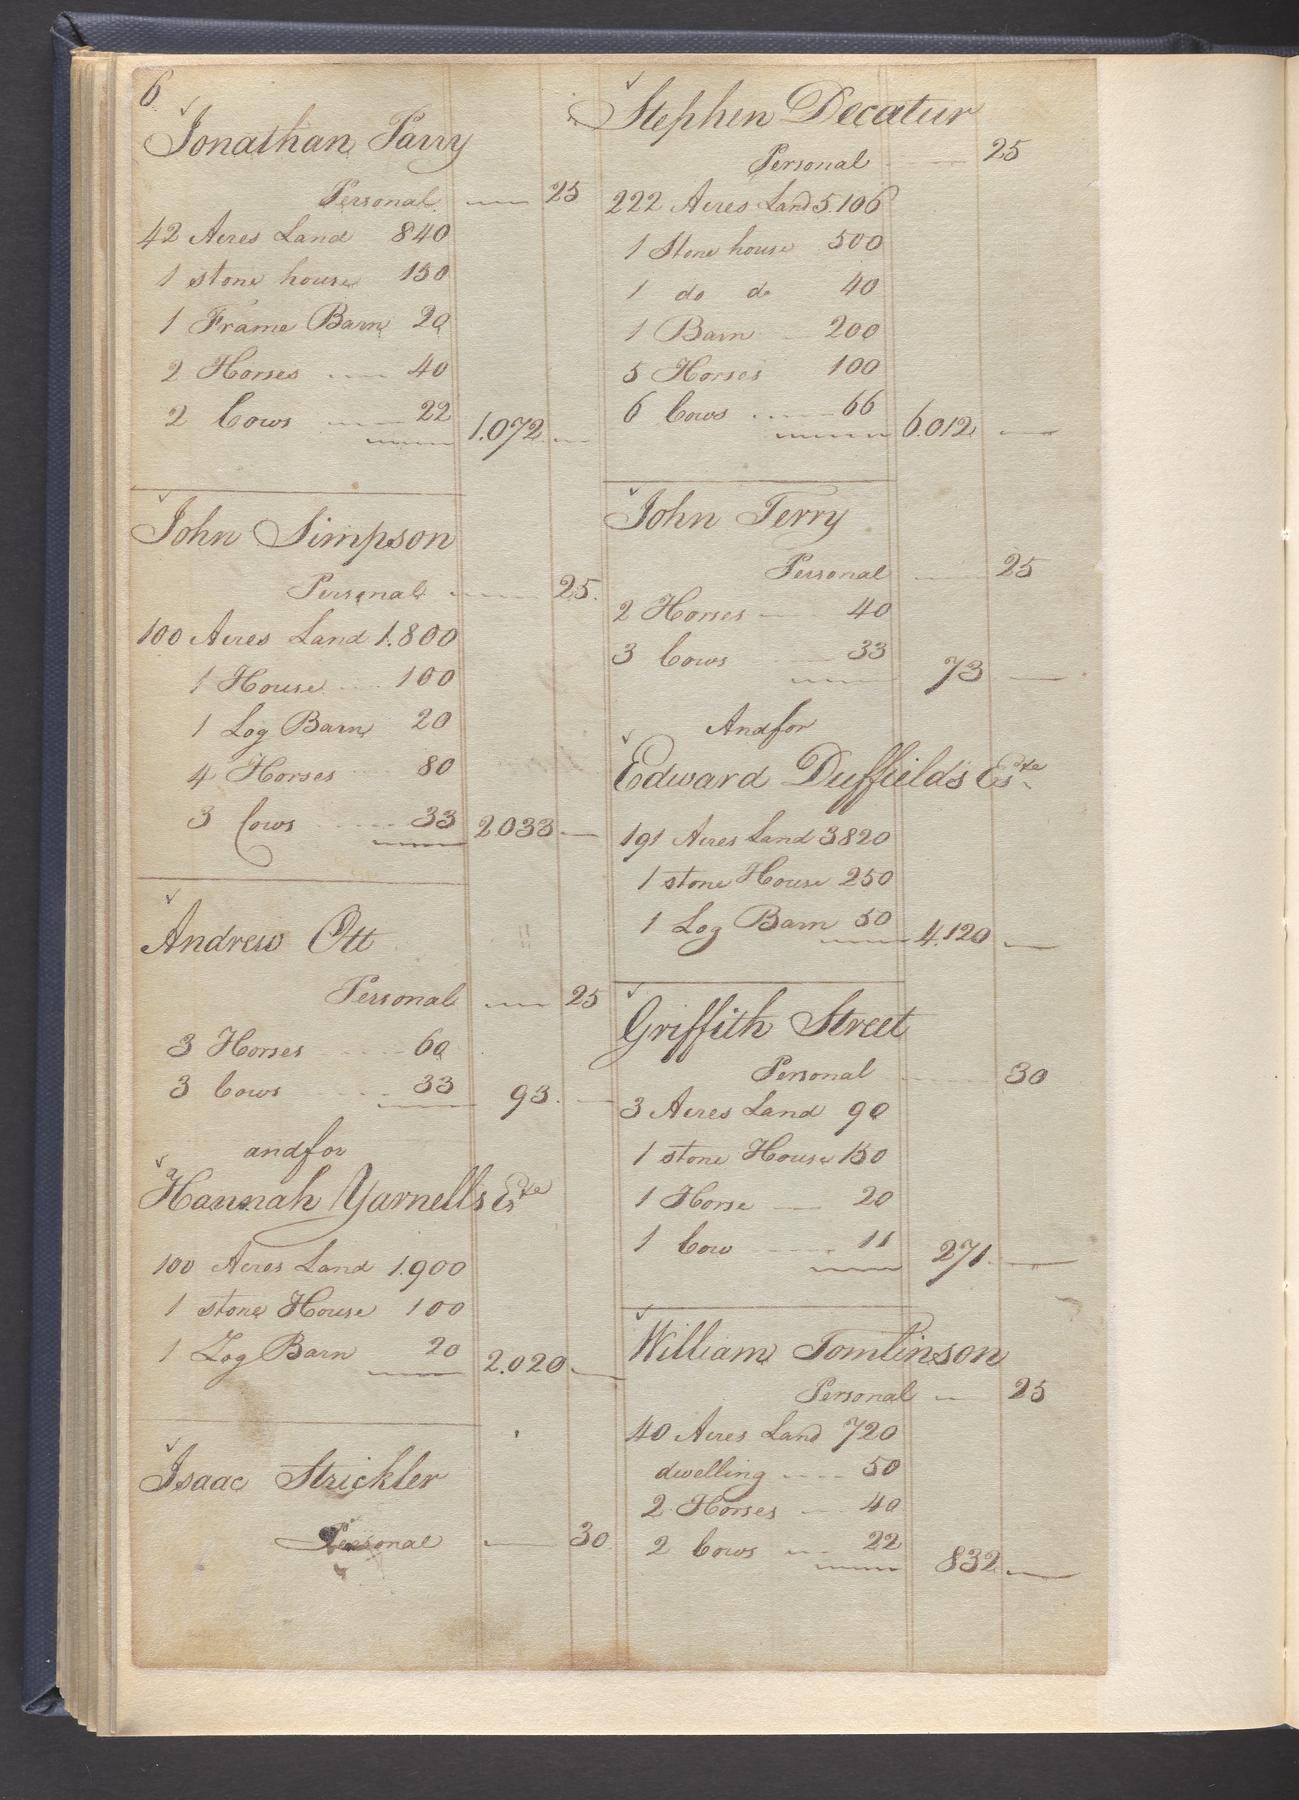 6
Jonathan Parry
Personal 25
42 Acres Land 840
1 stone house 150
1 Frame Barn 20
2 Horses 40
2 Cows 22 1.072
John Simpson
Personal 25.
100 Acres Land 1.800
1 House 100
1 Log Barn 20
4 Horses 80
3 Cows 33 2033
Andrew Ott
Personal 25
3 Horses 60
3 Cows 33 93.
andfor
Hannah Yarnells Es.te
100 Acres Land 1.900
1 stone House 100
1 Log Barn 20 2.020
Isaac Strickler
Personal 30
Stephen Decatur
Personal 25
222 Acres Land 5.106
1 Stone house 500
1 do do 40
1 Barn 200
5 Horses 100
6 Cows 66 6.012
John Terry
Personal 25
2 Horses 40
3 Cows 33 73
Andfor
Edward Duffield's Es.te
191 Acres Land 3820
1 stone House 250
1 Log Barn 50 4.120
Griffith Street
Personal 30
3 Acres Land 90
1 stone House 150
1 Horse 20
1 Cow 11 271.
William Tomlinson
Personal 25
40 Acres Land 720
dwelling 50
2 Horses 40
2 Cows 22 832